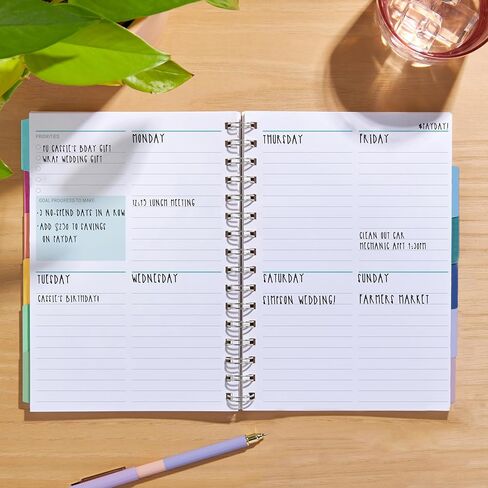 PRIORITIES
PU CASSIE'S BDAY GIFT
WRAP WEDDING GIFT
GOAL PROGRESS TO MAKE
-3 NO-SPEND DAYS IN A ROW
-ADD $250 TO SAVINGS
ON PAYDAY
MONDAY
12:15 LUNCH MEETING
TUESDAY
CASSIE'S BIRTHDAY!
WEDNESDAY
THURSDAY
$PAYDAY!
FRIDAY
CLEAN OUT CAR
MECHANIC APPT 1:30PM
SATURDAY
SIMPSON WEDDING!
SUNDAY
FARMERS MARKET